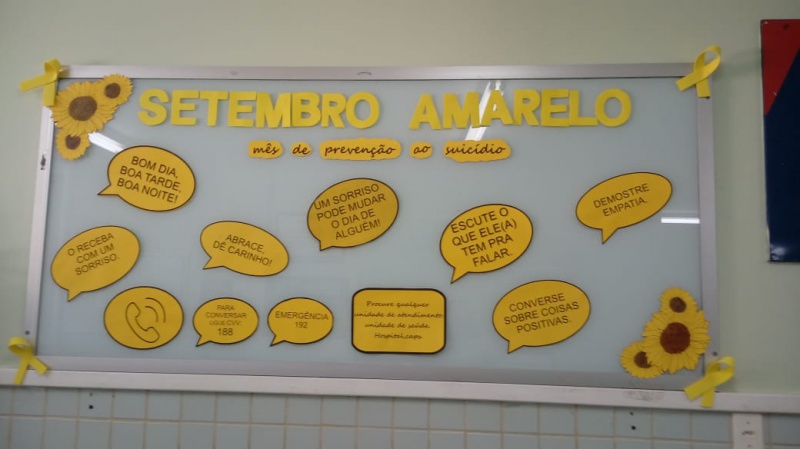 SETEMBRO AMARELO
mês de prevenção ao suicídio
BOM DIA,
BOA TARDE,
BOA NOITE!
UM SORRISO
PODE MUDAR
O DIA DE
ALGUÉM!
DEMOSTRE
EMPATIA.
ESCUTE O
QUE ELE(A)
TEM PRA
FALAR.
O RECEBA
COM UM
SORRISO.
ABRACE,
DÊ CARINHO!
PARA
CONVERSAR
LIGUE CVV:
188
EMERGÊNCIA
192
Procure qualquer
unidade de atendimento
unidade de saúde.
Hospital,caps.
CONVERSE
SOBRE COISAS
POSITIVAS.